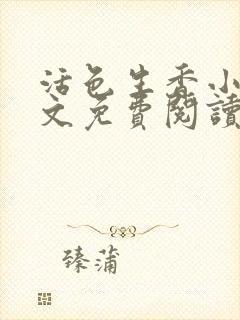 活色生香小
文免費閱讀
臻蒲